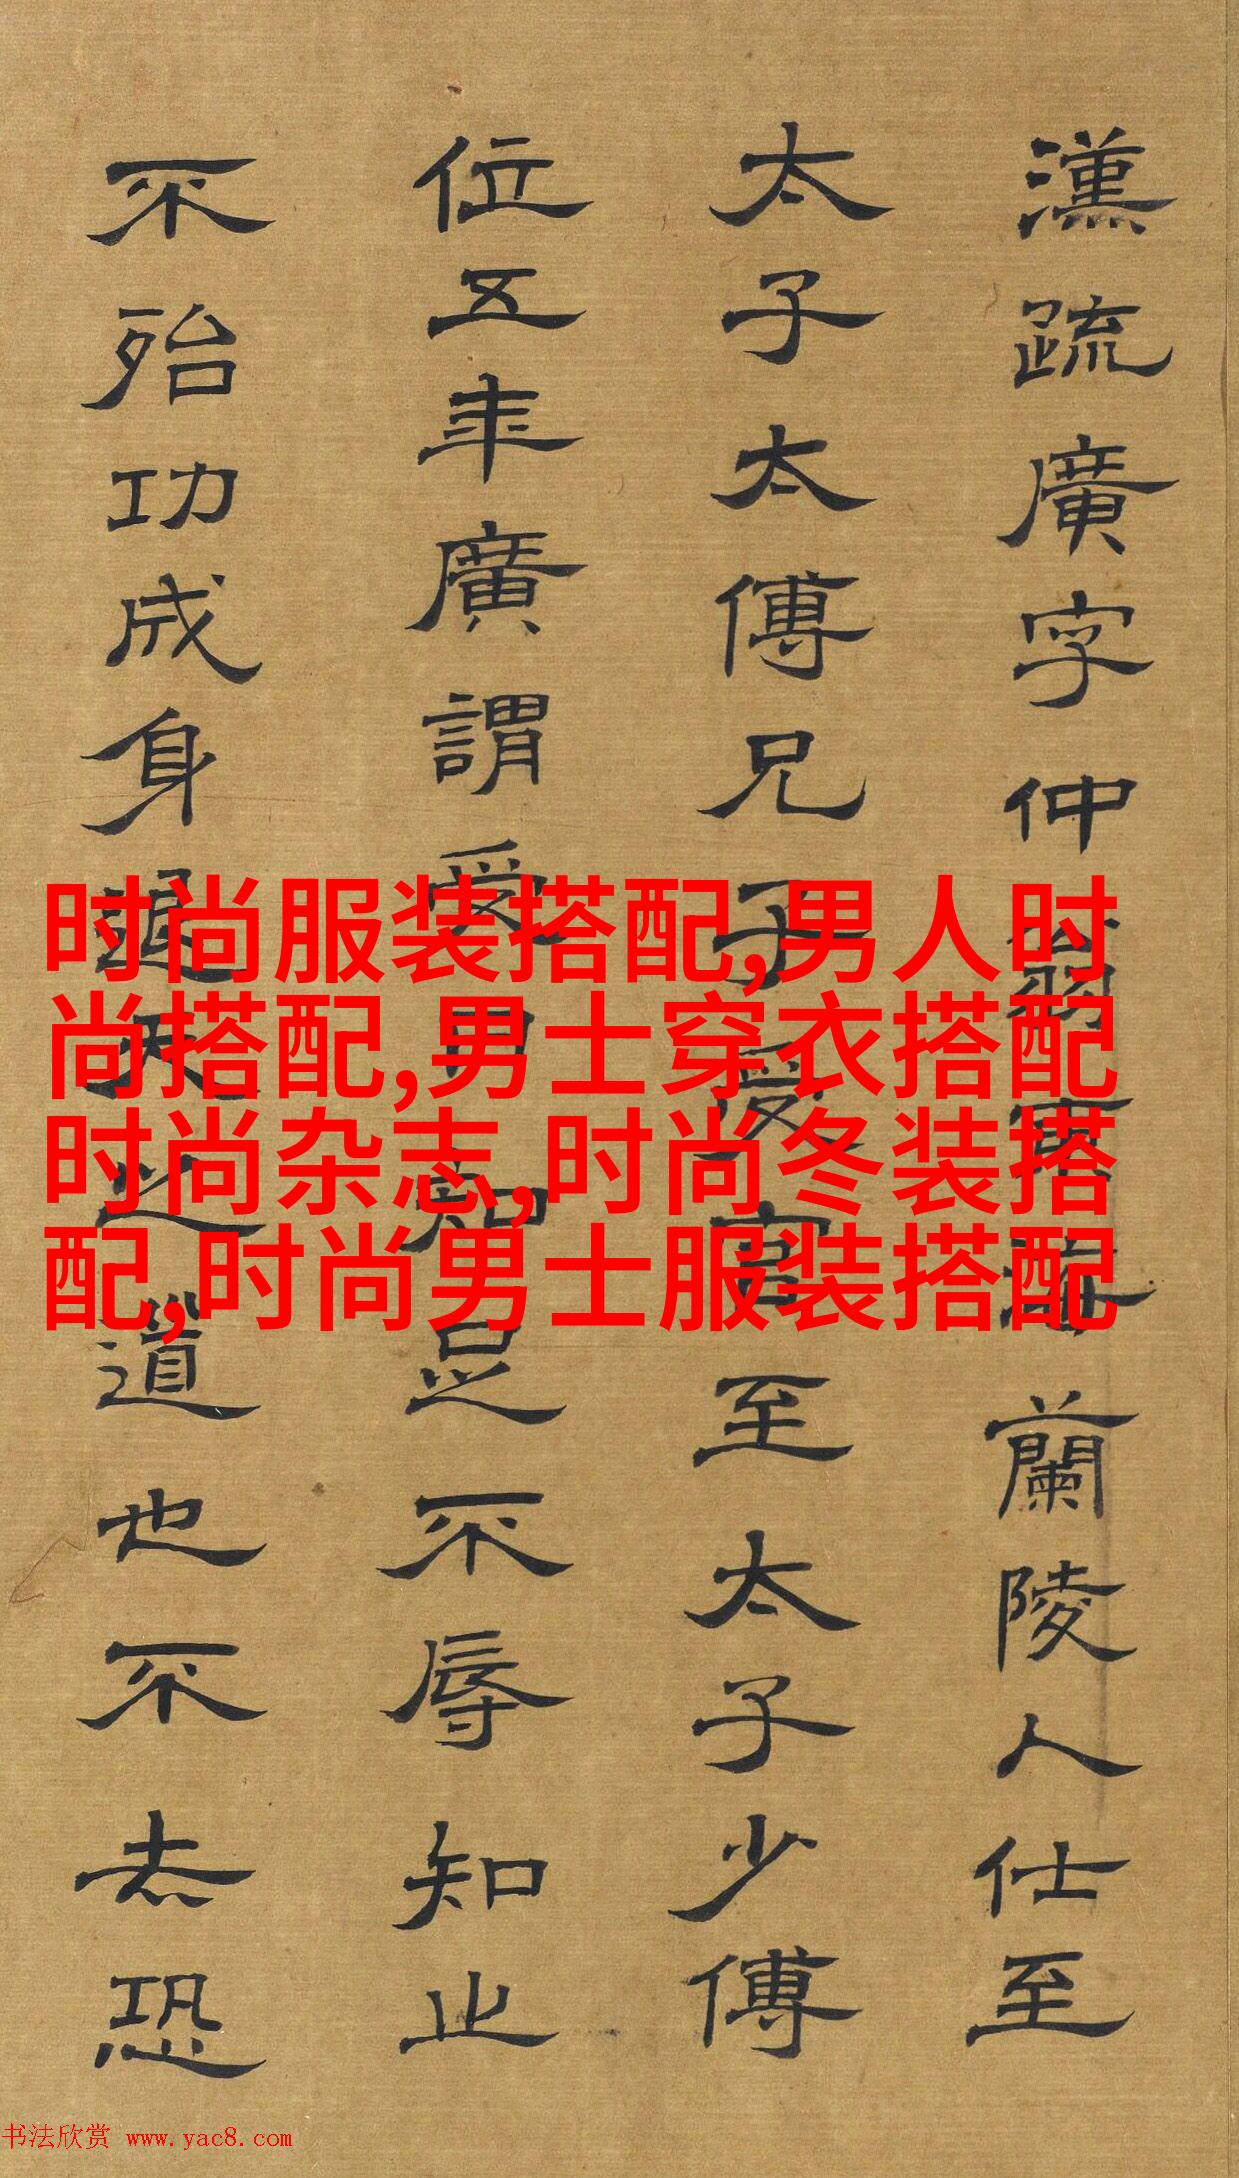 漢疏廣字仲翁東海蘭陵人仕至
太子太傅兄子受官至太子少傅
位五年廣謂受曰知足不辱知止
不殆功成身退天之道也不去恐
时尚服装搭配,男人时
尚搭配,男士穿衣搭配
时尚杂志,时尚冬装搭
配,时尚男士服装搭配
书法欣赏 www.yac8.com